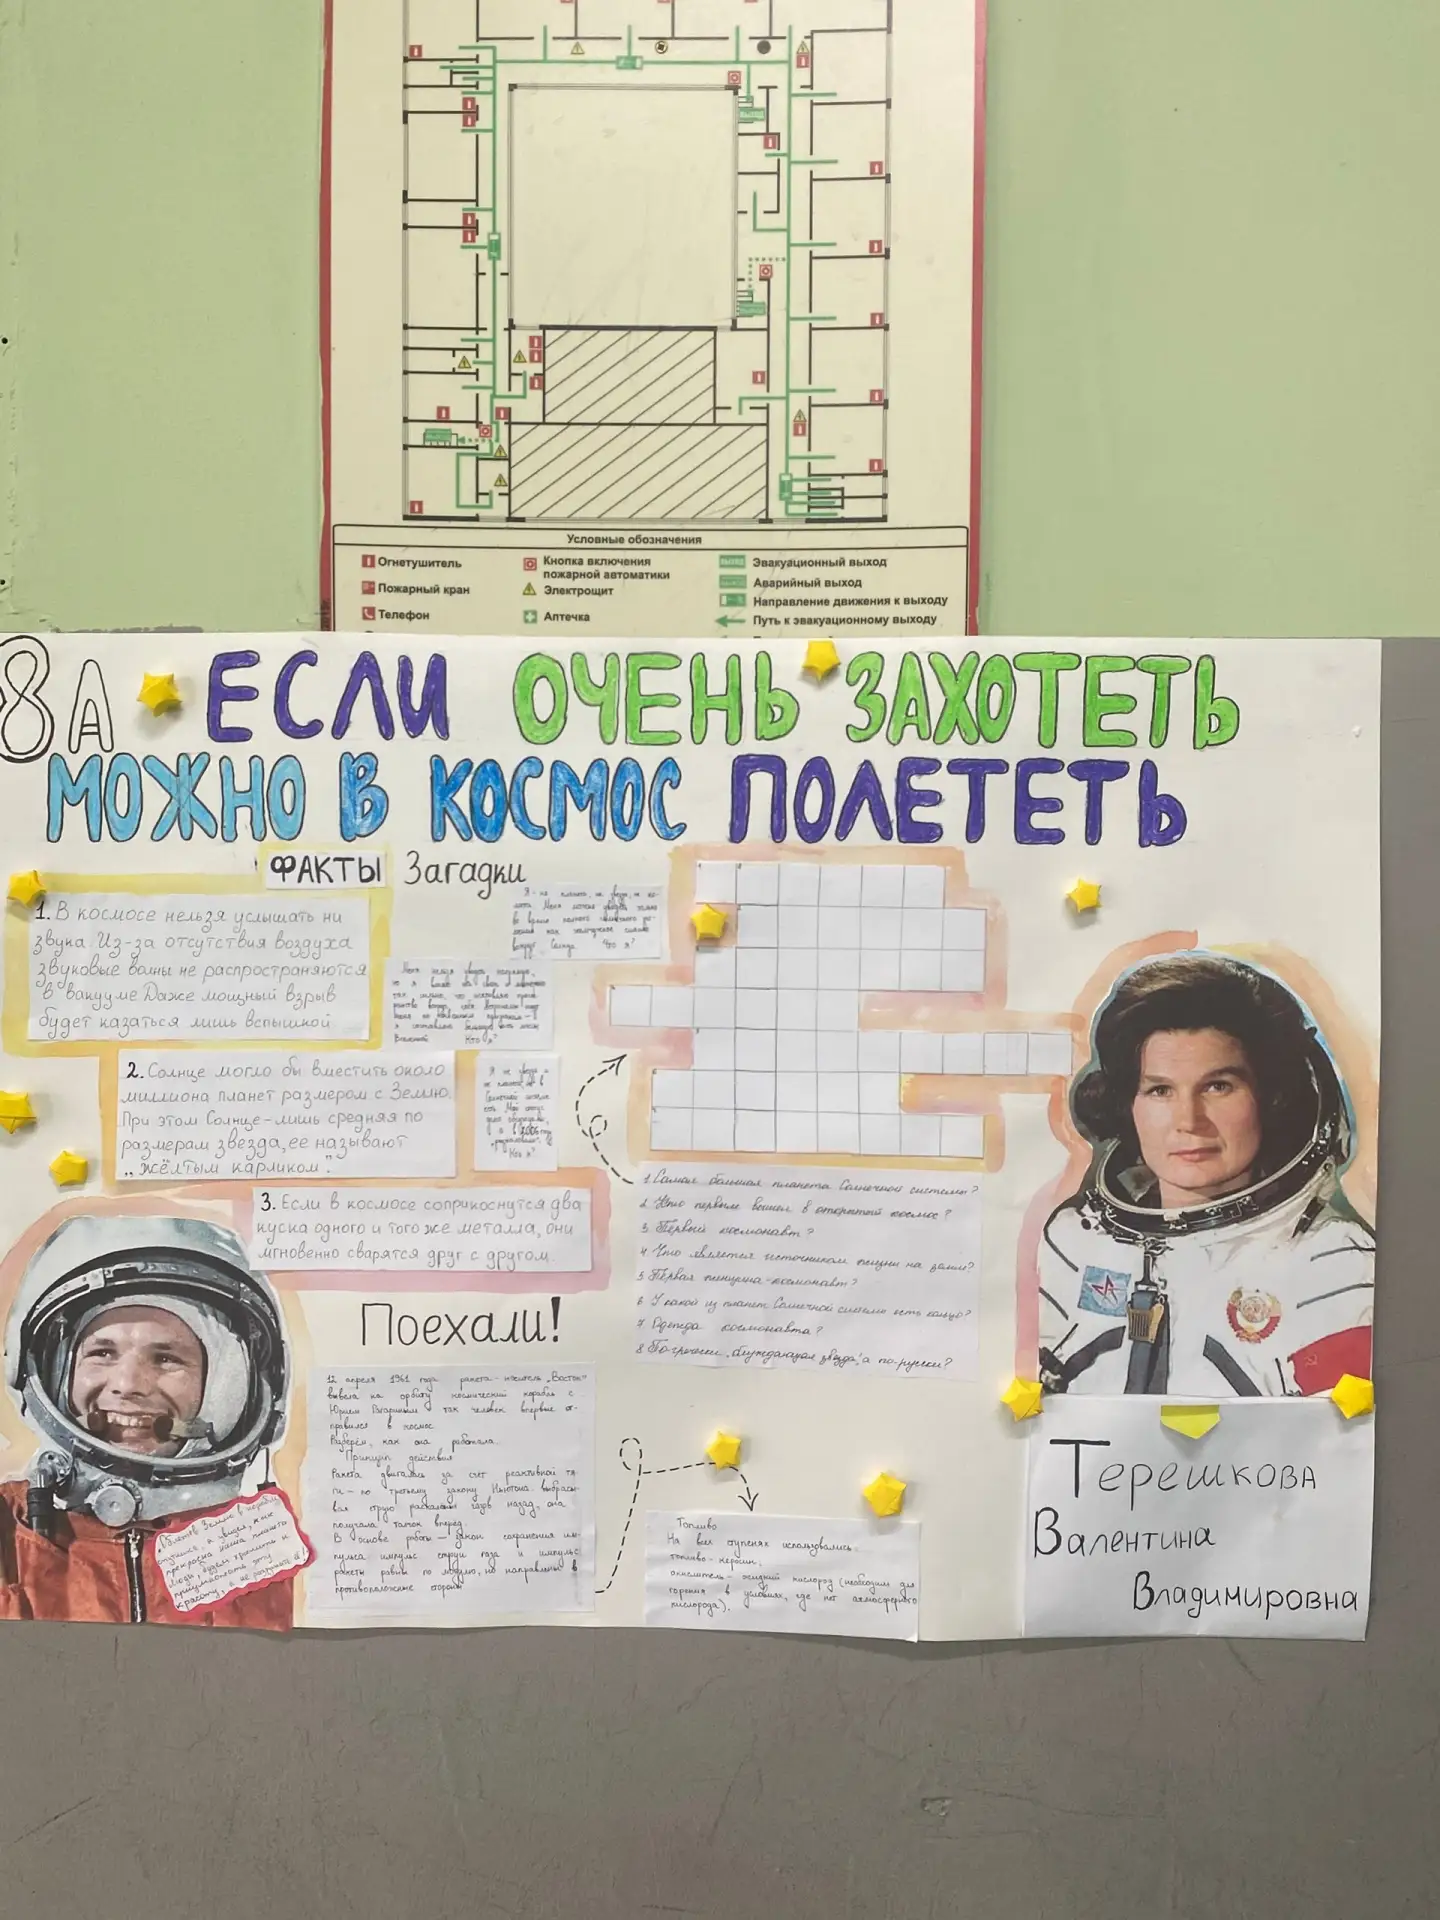 Условные обозначения
Огнетушитель
Пожарный кран
Телефон
Кнопка включения
пожарной автоматики
Электрощит
Аптечка
Эвакуационный выход
Аварийный выход
Направление движения к выходу
Путь к эвакуационному выходу
8А ЕСЛИ ОЧЕНЬ ЗАХОТЕТЬ
МОЖНО В КОСМОС ПОЛЕТЕТЬ
ФАКТЫ
1. В космосе нельзя услышать ни
звука. Из-за отсутствия воздуха
звуковые волны не распространяются
в вакууме. Даже мощный взрыв
будет казаться лишь вспышкой
2. Солнце могло бы вместить около
миллиона планет размером с Землю.
При этом Солнце - лишь средняя по
размерам звезда, ее называют
„жёлтым карликом".
3. Если в космосе соприкоснутся два
куска одного и того же металла, они
мгновенно сварятся друг с другом.
Загадки
Я - не планета, не звезда, не ко-
мета. Меня можно увидеть только
во время полного солнечного
вокруг Солнца. Что я?
Меня нельзя увидеть
Вселенной. Кто я?
Я не звезда и
не планета, но в
Солнечной системе
есть.
а в 2006 году
Кто я?
1 Самая большая планета Солнечной системы?
2 Кто первым вышел в открытый космос?
3 Первый космонавт?
4 Что является источником жизни на земле?
5 Первая женщина-космонавт?
6 У какой из планет Солнечной системы есть кольцо?
7 Одежда космонавта?
8 По-гречески „блуждающая звезда", а по-русски?
Поехали!
12 апреля 1961 года ракета-носитель „Восток"
вывела на орбиту космический корабль с
Юрием Гагариным так человек впервые от-
правился в космос
Разберём, как она работала.
Принцип действия
Ракета двигалась за счет реактивной тя-
ги - по третьему закону Ньютона: выбрасы-
вая струю раскаленных газов назад, она
получала толчок вперед.
В основе работы - закон сохранения им-
пульса: импульс струи газа и импульс
ракеты равны по модулю, но направлены в
противоположные стороны
Топливо
На всех ступенях использовались:
топливо - керосин;
окислитель - жидкий кислород (необходим для
горения в условиях, где нет атмосферного
кислорода).
„Облетев Землю в корабле-
спутнике, я увидел, как
прекрасна наша планета.
Люди, будем хранить и
приумножать эту
красоту, а не разрушать её!"
Терешкова
Валентина
Владимировна